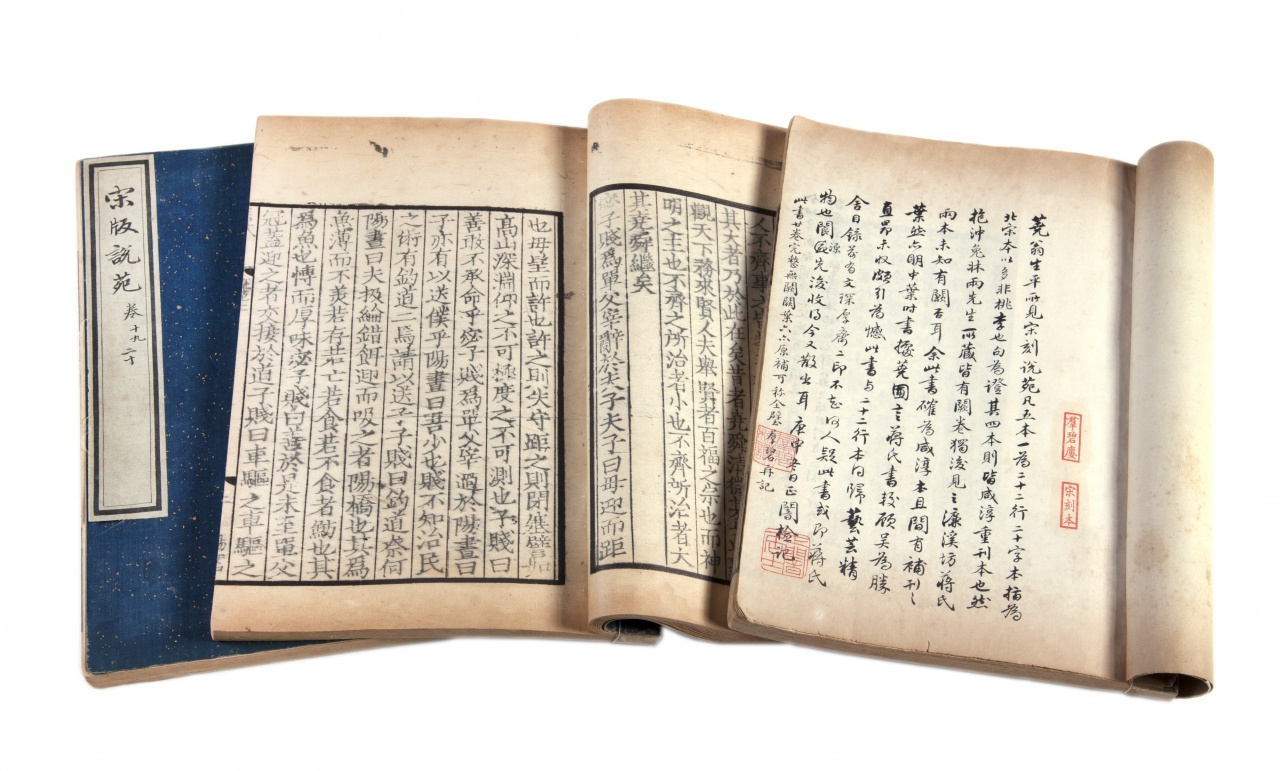 宋版説苑 卷十九二十
其大者乃於此在矣昔者堯舜清微其
觀天下務來賢人夫舉賢者百福之宗也而神
明之主也不齊之所治者小也不齊所治者大
其與堯舜繼矣
宓子賤爲單父宰辭於夫子夫子曰毋迎而距
也毋望而許也許之則失守距之則閉塞譬如
高山深淵仰之不可極度之不可測也子賤曰
善敢不承命乎宓子賤爲單父宰過於陽晝曰
子亦有以送僕乎陽晝曰吾少也賤不知治民
之術有釣道二焉請以送子子賤曰釣道柰何
陽晝曰夫扱綸錯餌迎而吸之者陽橋也其爲
魚薄而不美若存若亡若食若不食者魴也其
爲魚也博而厚味宓子賤曰善於是未至單父
冠蓋迎之者交接於道子賤曰車驅之車驅之
羣碧廔
宋刻本
蕘翁生平所見宋刻说苑凡五本一為二十二行二十字本指為
北宋本以多非桃李也句為證其四本則皆咸淳重刊本也然
抱沖兔牀兩先生所藏皆有闕卷獨後見之濂溪坊蔣氏
两本未知有闕否耳余此書確為咸淳本且間有補刊之
葉然亦明中葉時書據蕘圃言蔣氏書較顧吴為勝
直昂未收頗引為憾此書与二十二行本同歸藝芸精
舍目録前有文琛厚齋二印不知何人疑此書或即蔣氏
物也閬源先後收得今又散出耳庚申冬日正闇檢記
此書廿卷完整無闕闕葉亦原補可称全璧羣碧再記